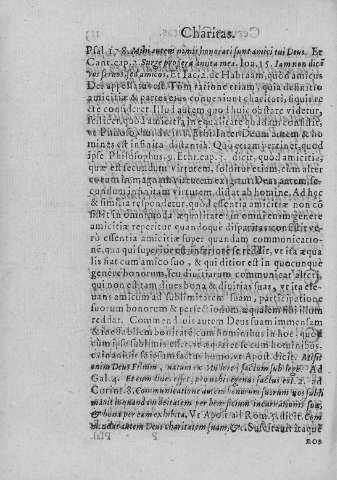 Charitas.
Psal. 138. Mihi autem nimis honorati sunt amici tui Deus. Et
Cant. cap. 2. Surge propera amica mea. Ioa. 15. Iam non dico
vos servos sed amicos. Et Iac. 2. de Habraam, quòd amicus
Dei appellatus est. Tom ratione etiam, quia definitio
amicitiæ & partes ejus conveniunt charitati, siquis rectè
consideret. Illud autem quod huic obstare videtur,
scilicet, quòd amicitia in æqualitate quadam consistit,
ut Philosophus dicit 8. Ethi. Inter Deum autem & ho
mines est infinita distantia. Quò etiam pertinet, quod
ipse Philosophus 9. Ethi. cap. 3. dicit, quòd amicitia,
quæ est secundum virtutem, solvitur etiam, cum alter
eorum in magnam virtutem exigitur. Deus autem, se-
cundum infinitam virtutem, distat ab homine. Ad hoc
& similia respondetur, quòd essentia amicitiæ non co
sistit in omnimoda æqualitate: in omni enim genere
amicitiæ reperitur quandoque disparitas: consistit ve-
rò essentia amicitiæ super quandam communicatio-
nem, qua qui superior est, inferiore se reddit, ut ita æqua
lis fiat cum amico suo, & qui ditior est in quocunque
genere bonorum, seu divitiarum communicat alteri,
qui non est tam dives bona & divitias suas, ut ita efe-
vans amicum ad sublimitatem suam, participatione
suorum bonorum & perfectionum æqualem sibi illum
reddat. Commendavit autem Deus suam immensam
& ineffabilem bonitatem cum hominibus in hoc, quod
cum ipse sublimis esset, ut se æquaret cum hominibus
 seipsum factus homo, ut Apost. dicit. Misit
enim Deus Filium, natum ex Muliere, factum sub lege. Ad
Gal. 4. Et cum dives esset, pro nobis egenus factus est. 2. ad
Corint. 8. Communicationem autem bonorum suorum nos subli
mavit in quandam deitatem per beneficium incarnationis suæ,
& bona per eam exhibita. Ut Apost. ad Rom. 5. dicit. Com
mendat autem Deus charitatem suam, &c. Suscitavit itaque
nos